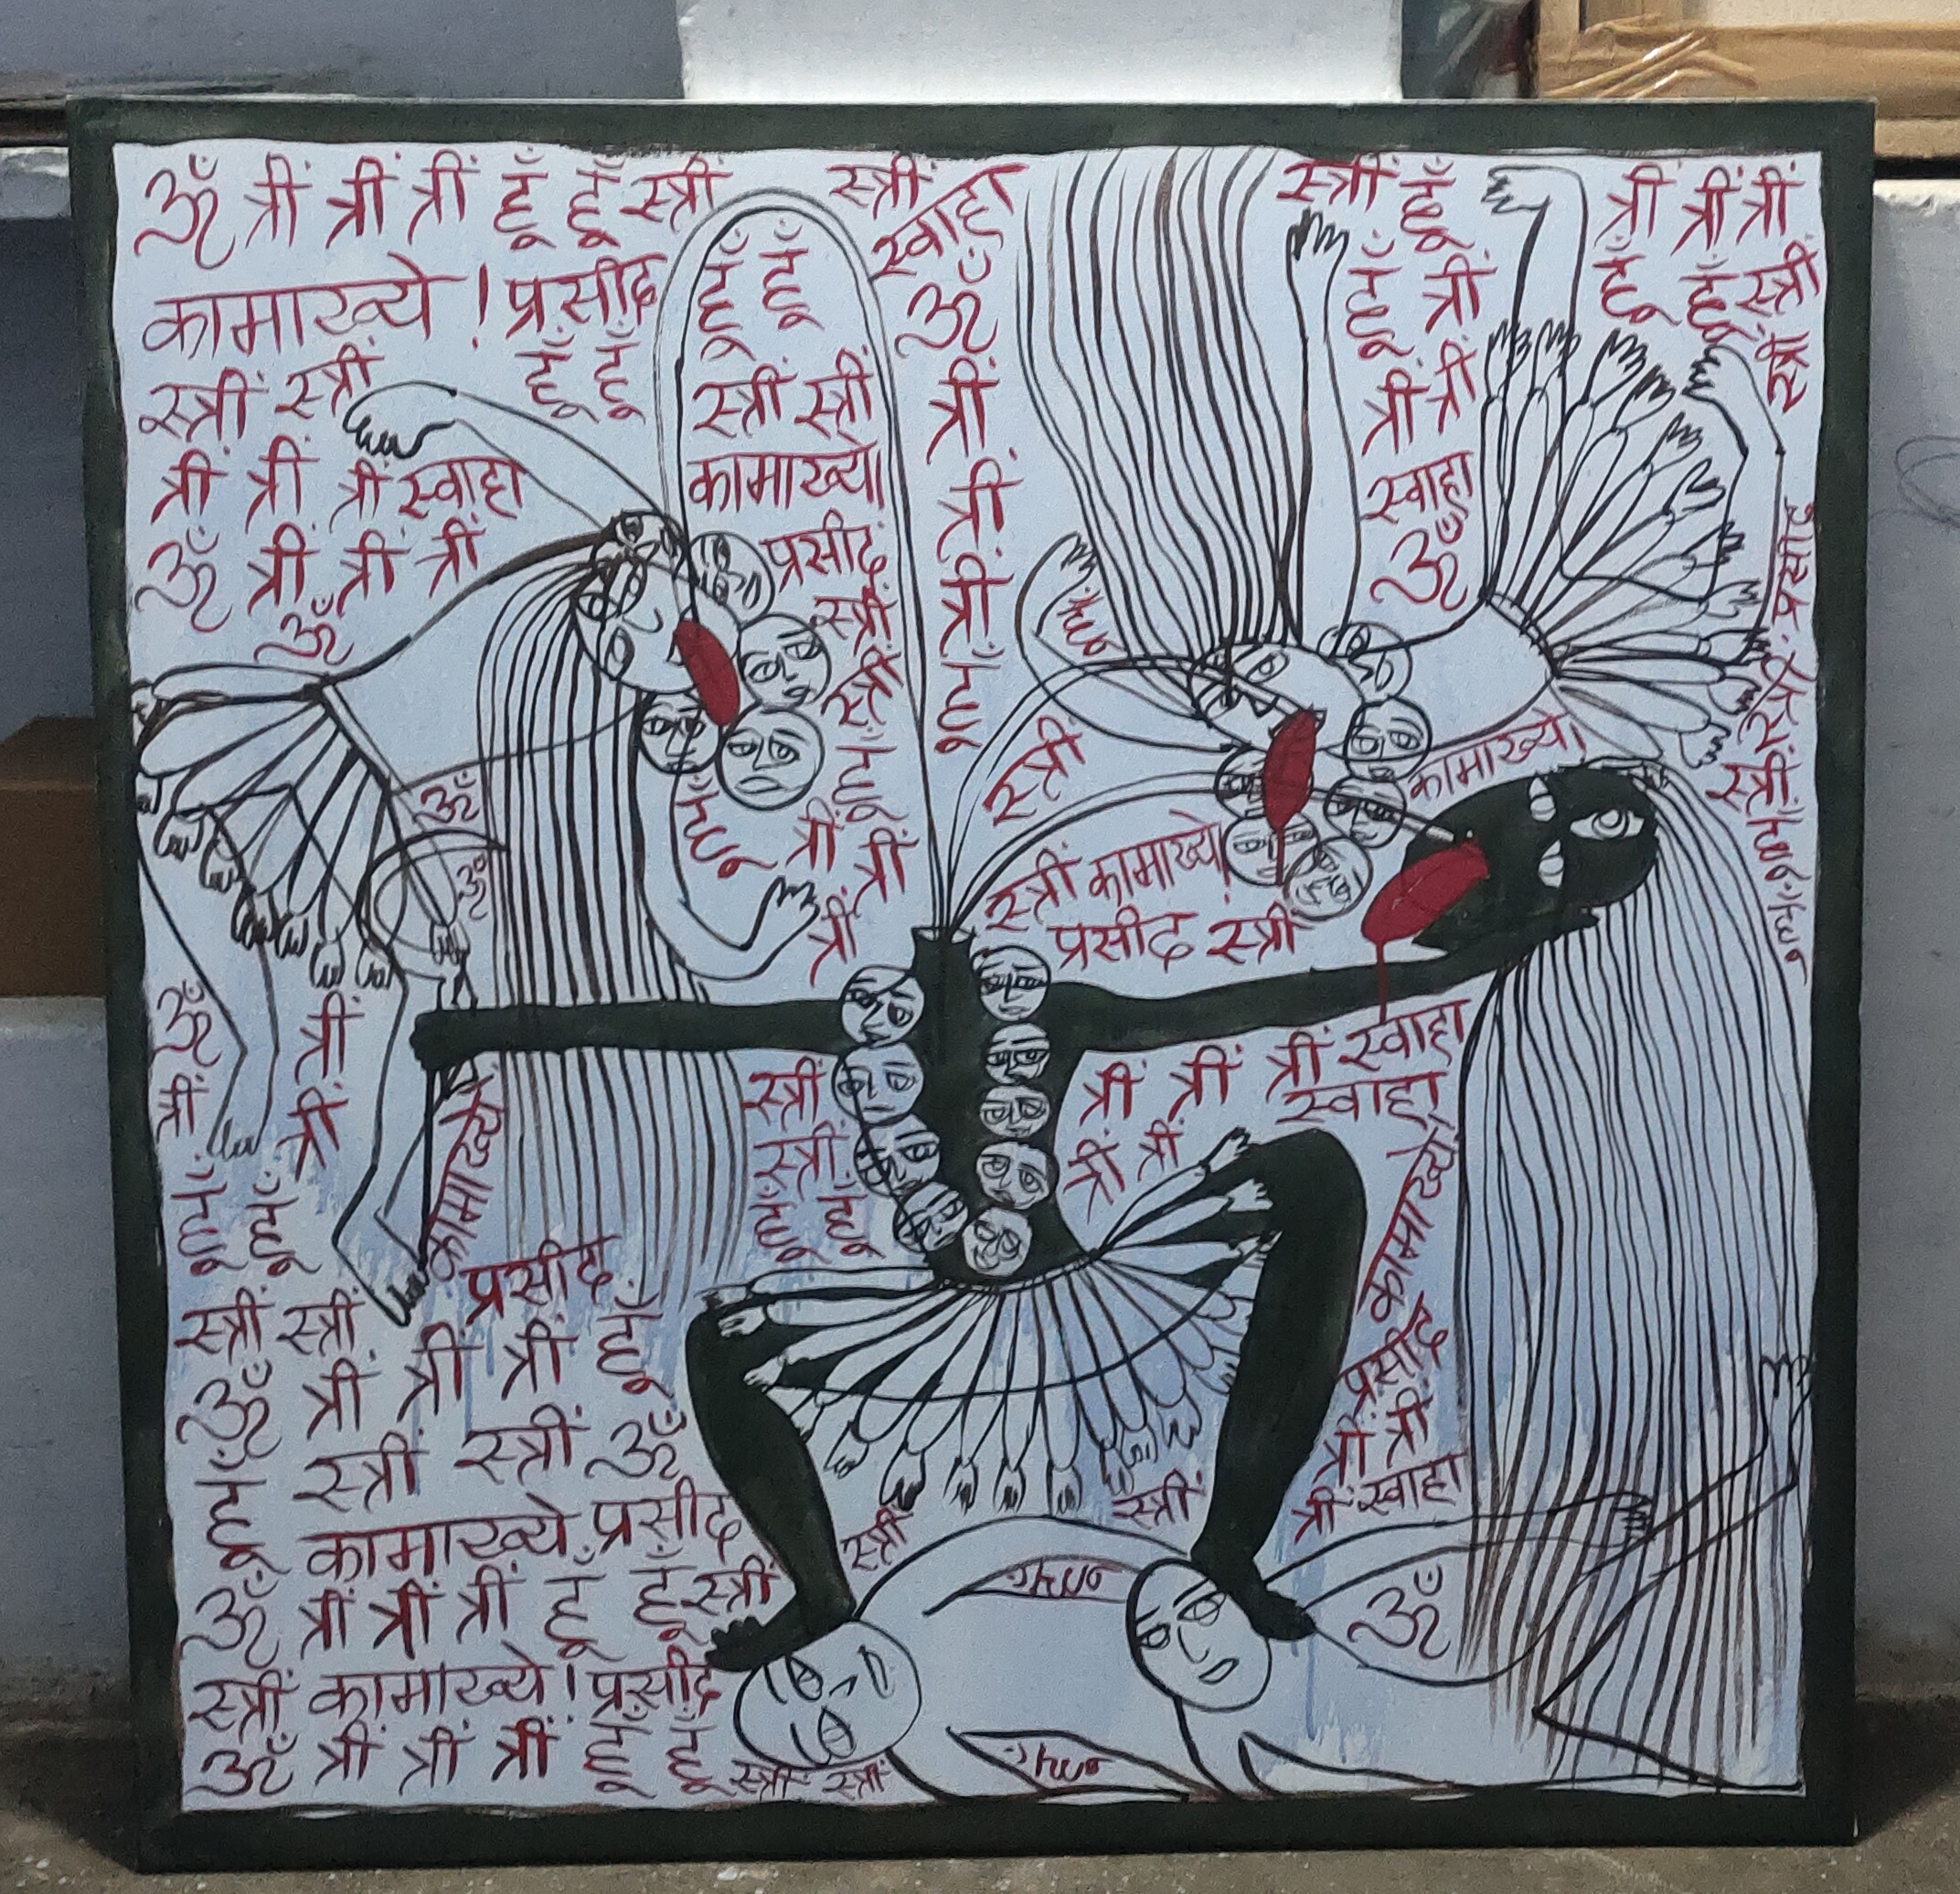 ॐ त्रीं त्रीं त्रीं हूँ हूँ स्त्रीं
कामाख्ये ! प्रसीद
स्त्रीं स्त्रीं हूँ हूँ
त्रीं त्रीं त्रीं स्वाहा
ॐ त्रीं त्रीं त्रीं
ॐ
हूँ हूँ
स्त्रीं स्त्रीं
कामाख्ये।
प्रसीद
स्त्रीं
स्त्रीं
हूँ
त्रीं त्रीं
त्रीं
हूँ
स्त्रीं
स्वाहा
ॐ
त्रीं
त्रीं
त्रीं
हूँ
स्त्रीं हूँ
हूँ त्रीं
त्रीं त्रीं
स्वाहा
ॐ
त्रीं त्रीं त्रीं
हूँ हूँ स्त्रीं
प्रसीद
स्त्रीं
स्त्रीं
हूँ
हूँ
हूँ
स्त्रीं
कामाख्ये।
स्त्रीं कामाख्ये।
प्रसीद स्त्रीं
ॐ
ॐ
ॐ
त्रीं
त्रीं
त्रीं
हूँ हूँ
कामाख्ये
प्रसीद
स्त्रीं
स्त्रीं
हूँ हूँ
त्रीं त्रीं त्रीं स्वाहा
स्वाहा
त्रीं त्रीं
कामाख्ये
प्रसीद
त्रीं त्रीं
त्रीं स्वाहा
स्त्रीं स्त्रीं
ॐ त्रीं त्रीं त्रीं हूँ
हूँ स्त्रीं स्त्रीं ॐ
कामाख्ये प्रसीद
स्त्रीं
स्त्रीं
ॐ त्रीं त्रीं त्रीं हूँ हूँ स्त्रीं
हूँ
ॐ
स्त्रीं कामाख्ये ! प्रसीद
ॐ त्रीं त्रीं त्रीं हूँ हूँ स्त्रीं स्त्रीं
हूँ